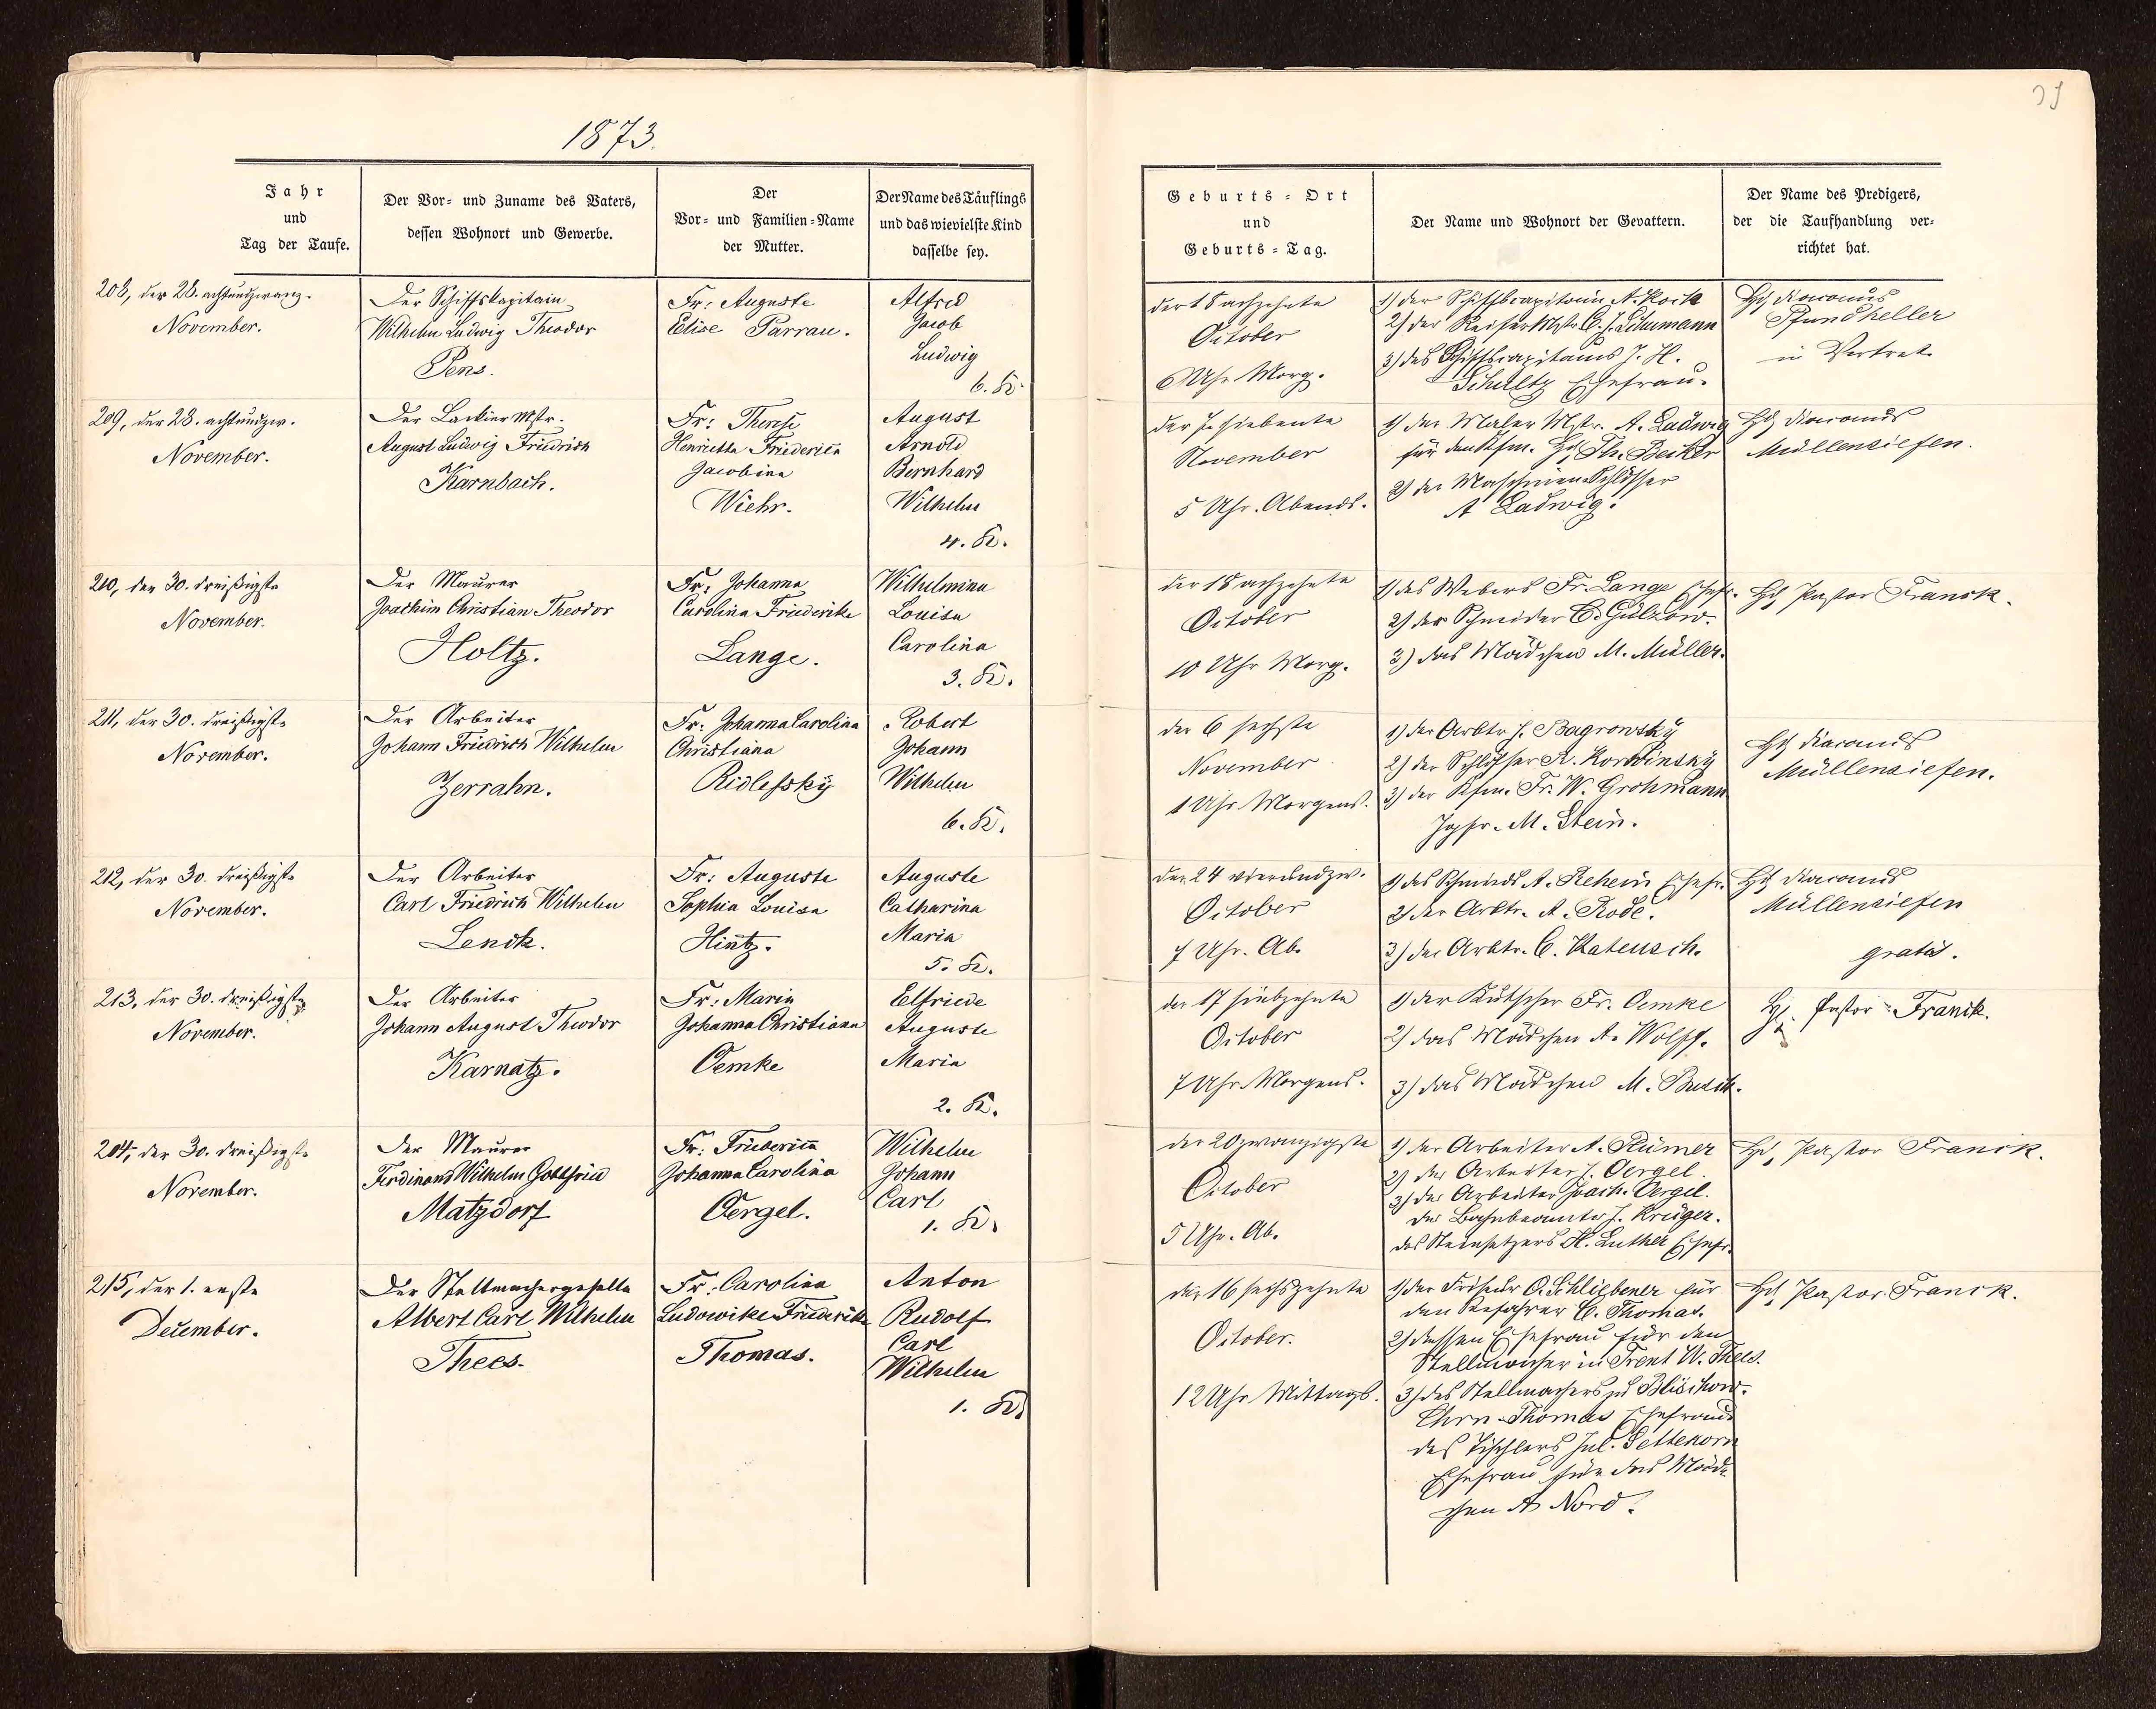 1873.
Jahr
und
Tag der Taufe.
Der Vor- und Zuname des Vaters,
dessen Wohnort und Gewerbe.
Der
Vor- und Familien-Name
der Mutter.
Der Name des Täuflings
und das wievielste Kind
dasselbe sey.
Geburts-Ort
und
Geburts-Tag.
Der Name und Wohnort der Gevattern.
Der Name des Predigers,
der die Taufhandlung ver-
richtet hat.
208, der 28. achtundzwanz.
November.
Der Schiffskapitain
Wilhelm Ludwig Theodor
Pens.
Fr: Auguste
Elise Parrau.
Alfred
Jacob
Ludwig
6. K.
der 18 achzehnte
October
6 Uhr Morg.
1) der Schiffscapitain A. Kock
2) der Reifer Mstr. C. J. Schumann
3) des Schiffscapitains J. H.
Schultz Ehefrau.
H. Diaconus
Pfundheller
in Vertret.
209, der 28. achtundzw.
November.
Der Lackier Mstr.
August Ludwig Friedrich
Karnbach.
Fr: Therese
Henrietta Friederica
Jacobina
Wiehr.
August
Arnold
Bernhard
Wilhelm
4. K.
der 7. siebente
November
5 Uhr. Abends.
1) der Maler Mstr. A. Ladwig
für den Kfm. H. Th. Becker
2) der Maschinen Schlosser
A Ladwig.
H. Diaconus
Müllensiefen.
210, der 30. dreißigste
November.
Der Maurer
Joachim Christian Theodor
Holtz.
Fr: Johanna
Carolina Friederike
Lange.
Wilhelmina
Louisa
Carolina
3. K.
der 18 achzehnte
October
10 Uhr Morg.
1) des Webers Fr. Lange Ehefr.
2) der Schneider C. Gülzow.
3) das Mädchen M. Müller.
H. Pastor Franck.
211, der 30. dreißigste
November.
Der Arbeiter
Johann Friedrich Wilhelm
Zerrahn.
Fr. Johanna Carolina
Christiana
Ridlefsky
Robert
Johann
Wilhelm
6. K.
der 6 sechste
November
1 Uhr Morgens.
1) der Arbtr J. Bagrowsky
2) der Schlosser R.
3) der Kfm. Fr. W. Grohmann
Jgfr. M. Stein.
H. Diaconus
Müllensiefen.
212, der 30. dreißigste
November.
Der Arbeiter
Carl Friedrich Wilhelm
Lenck.
Fr: Auguste
Sophia Louisa
Hintz.
Auguste
Catharina
Maria
5. K.
der 24 vierundzw.
October
7 Uhr. Ab.
1) des Schmieds A. Rehein Ehefr.
2) der Arbtr. A. Rode.
3) der Arbtr. C. Katensch.
H. Diaconus
Müllensiefen
gratis.
213, der 30. dreißigste
November.
Der Arbeiter
Johann August Theodor
Karnatz.
Fr: Maria
Johanna Christiana
Oemke
Elfriede
Auguste
Maria
2. K.
der 17 siebzehnte
October
7 Uhr Morgens.
1) der Kutscher Fr. Oemke
2) das Mädchen A. Wolff.
3) das Mädchen M. Busch.
H. Pastor Franck.
214, der 30. dreißigste
November.
Der Maurer
Ferdinand Wilhelm Gottfried
Matzdorf
Fr. Friederica
Johanna Carolina
Oergel.
Wilhelm
Johann
Carl
1. K.
der 20 zwanzigste
October
5 Uhr. Ab.
1) der Arbeiter A. Rümer
2) der Arbeiter J. Oergel.
3) der Arbeiter Joach. Oergel.
der Bahnbeamte J. Krüger.
des Steinsetzers H. Luther Ehefr.
H. Pastor Franck.
215, der 1. erste
December.
Der Stellmachergeselle
Albert Carl Wilhelm
Thees.
Fr. Carolina
Ludowike Friederike
Thomas.
Anton
Rudolf
Carl
Wilhelm
1. K.
der 16 sechszehnte
October.
12 Uhr Mittags.
1) der Friseur O. Schliebener für
den Seefahrer C. Thomas.
2) dessen Ehefrau für den
Stellmacher in Trent W. Thees.
3) des Stellmachers zu Blischow.
Chrn Thomas Ehefrau
des Tischlers Jul. Settekorn
Ehefrau für das Mäd-
chen A Nord.
H. Pastor Franck.